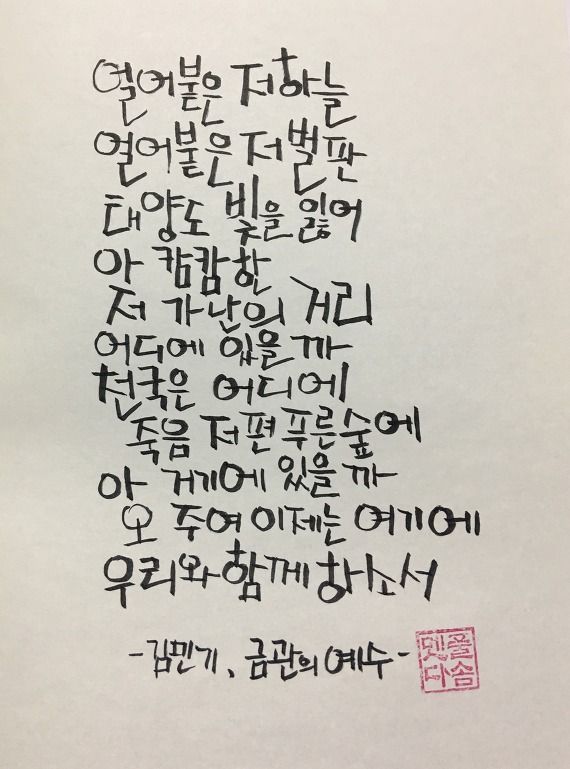 얼어붙은 저 하늘
얼어붙은 저 벌판
태양도 빛을 잃어
아 캄캄한
저 가난의 거리
어디에 있을까
천국은 어디에
죽음 저편 푸른 숲에
아 거기에 있을까
오 주여 이제는 여기에
우리와 함께 하소서
-김민기, 금관의 예수-